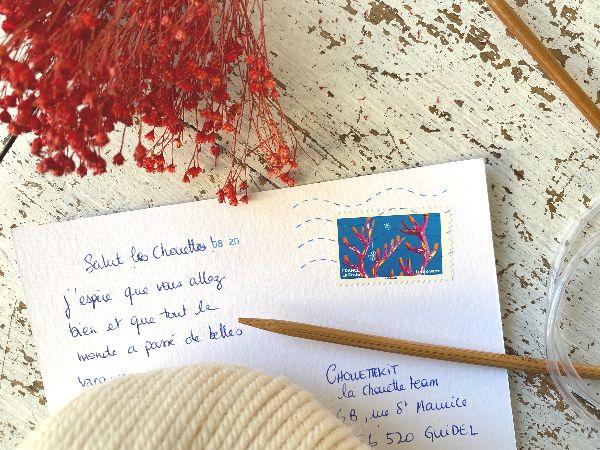 Salut les Chouettes !
j'espère que vous allez
bien et que tout le
monde a passé de belles
08 20
FRANCE
CHOUETTEKIT
la chouette team
rue St Maurice
520 GUIDEL